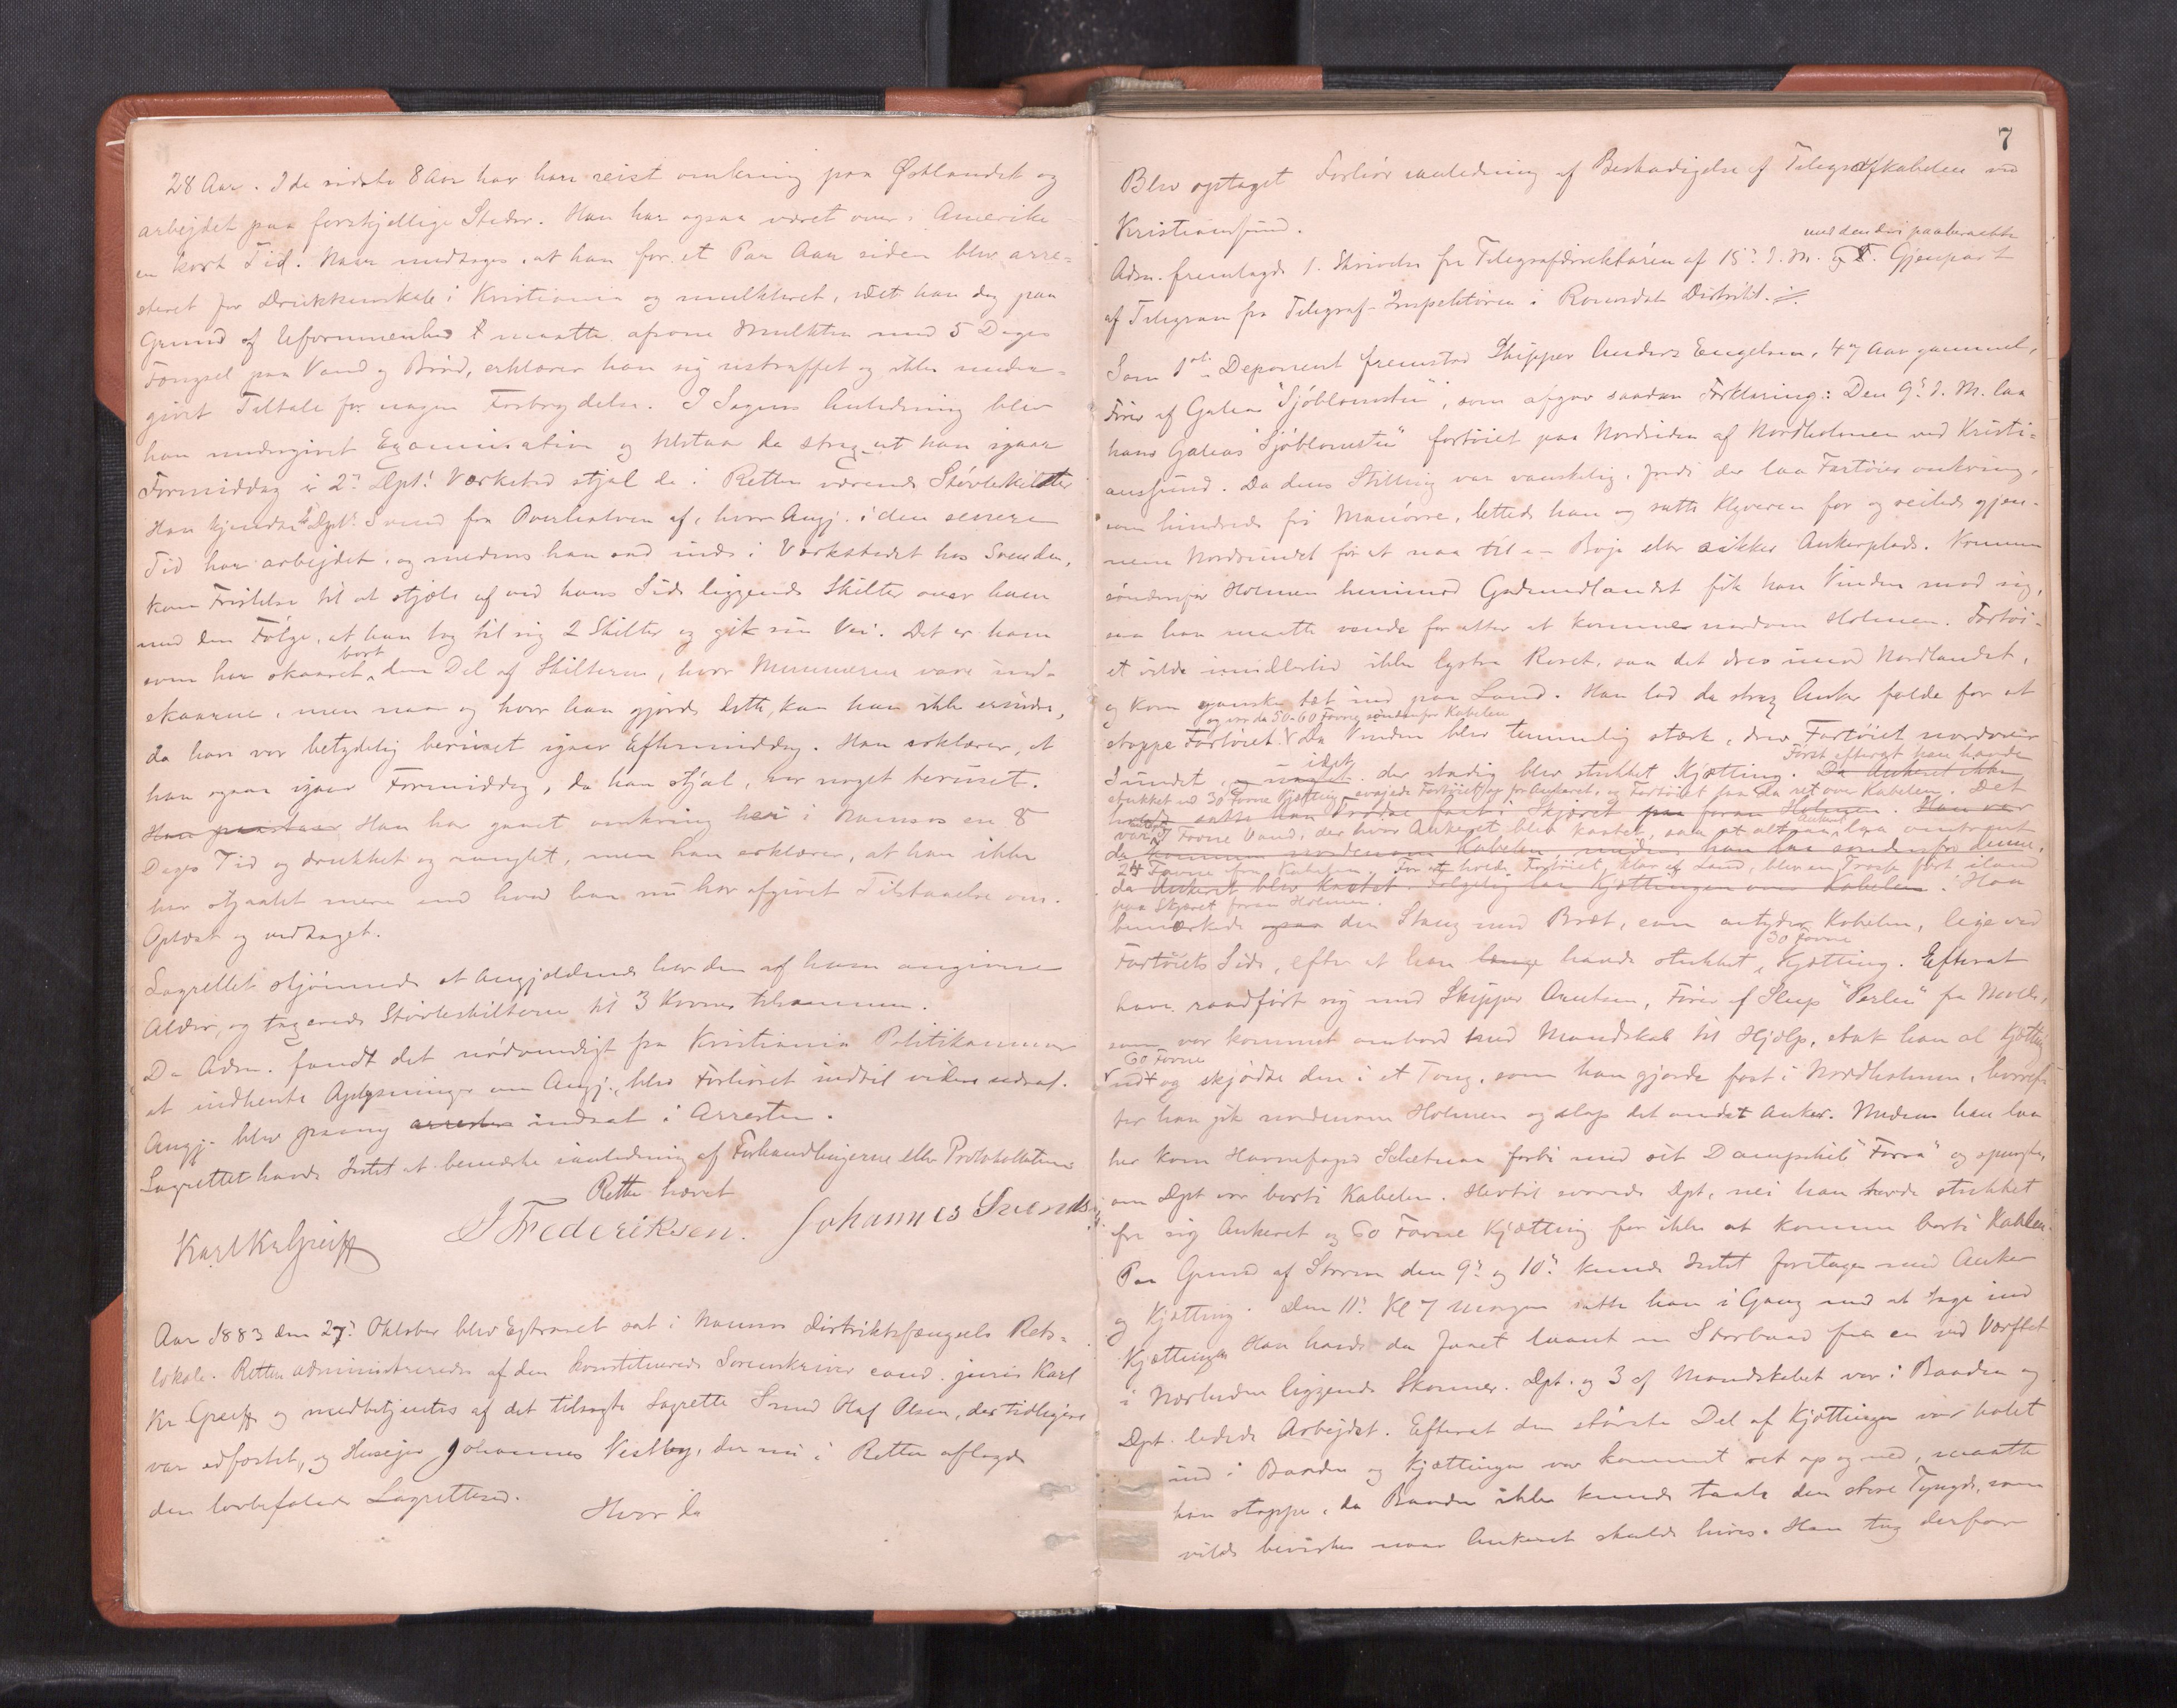 28 Aar. I de sidste 8 Aar har han reist omkring paa Østlandet og
arbejdet paa forskjellige Steder. Han har ogsaa været over i Amerika
en kort Tid. Naar undtages, at han for et Par Aar siden blev arre-
steret for Drukkenskab i Kristiania og mulkteret, idet han dog paa
Grund af Uformuenhed maatte afsone Mulkten med 5 Dages
Fængsel paa Vand og Brød, erklærer han sig ustraffet og ikke under-
givet Tiltale for nogen Forbrydelse. I Sagens Anledning blev
han undergivet Examination og tilstaar da strax at han igaar
Formiddag i 2det Dpts Værksted stjal de i Retten værende Støvleskilter
Han kjender Dpts Svend fra Overhalven af, hvor Angj. i den senere
Tid har arbejdet, og medens han sad inde i Værkstedet hos Svenden,
kom Fristelse til at stjæle af ved hans Side liggende Skilter over ham
med den Følge, at han tog til sig 2 Skilter og gik sin Vei. Det er ham
bort
som har skaaret den Del af Skilterne, hvor Numerene vare ind-
skaarne, men naar og hvor han gjorde dette, kan han ikke erindre,
da han var betydelig beruset igaar Eftermiddag. Han erklærer, at
han ogsaa igaar Formiddag, da han stjal, var noget beruset.
Han paastaar Han har gaaet omkring her i Namsos en 8
Dages Tid og drukket og ranglet, men han erklærer, at han ikke
har stjaalet mere end hvad han nu har afgivet Tilstaaelse om.
Oplæst og vedtaget.
Lagrettet skjønnede at Angjældende har den af ham angivne
Alder, og taxerede Støvleskilterne til 3 Kroner tilsammen.
Da Adm. fandt det nødvendigt fra Kristiania Politikammer
at indhente Oplysninger om Angj., blev Forhøret indtil videre udsat.
Angj. blev paany arresten indsat i Arresten.
Lagrettet havde Intet at bemærke i anledning af Forhandlingerne eller Protokollationen
Retten hævet
Karl Kr Greiff J Frederiksen. Johannes Svends
Aar 1883 den 27de Oktober blev Extraret sat i Namsos Distriktsfængsels Rets-
lokale. Retten administreredes af den konstituerede Sorenskriver cand. juris Karl
Kr. Greiff og medbetjentes af det tilsagte Lagrette Svend Olaf Olsen, der tidligere
var edfæstet, og Huseier Johannes Vestby, der nu i Retten aflagde
den lovbefalede Lagretteed.
Hvor da
7
Blev optaget Forhør i anledning af Beskadigelse af Telegrafkabelen ved
Kristiansund.
med den deri paaberaabte
Adm. fremlagde 1. Skrivelse fra Telegrafdirektøren af 15de d. M. Gjenpart
af Telegram fra Telegraf-Inspektøren i Romsdals Distrikt.
Som 1ste Deponent fremstod Skipper Anders Engelsen, 47 Aar gammel,
Fører af Galeas "Sjøblomsten", som afgav saadan Forklaring: Den 9de d. M. laa
hans Galeas "Sjøblomsten" fortøiet paa Nordsiden af Nordholmen ved Kristi-
ansund. Da dens Stilling var vanskelig, fordi der laa Fartøier omkring,
som hindrede fri Manøvre, lettede han og satte Klyveren for og seilede gjen-
nem Nordsundet for at naa til en Bøje eller sikker Ankerplads. Kommen
søndenfor Holmen henimod Gudmundlandet fik han Vinden mod sig,
saa han maatte vende for atter at komme nordom Holmen. Fartøi-
et vilde imidlertid ikke lystre Roret, saa det drev imod Nordlandet,
og kom ganske tæt ind paa Land. Han lod da strax Anker falde for at
og var da 50-60 Favne søndenfor Kabelen
stoppe Fartøiet. Da Vinden blev temmelig stærk, drev Fartøiet nordover
idet Først efterat han havde
Sundet, og noget der stadig blev stukket Kjætting. Da Ankeret ikke
stukket ud 30 Favne Kjætting svajede Fartøiet op for Ankeret, og Fartøiet laa da ret over Kabelen. Det
holdt satte han Trosse fast i Skjæret paa foran Holmen. Han var
var Favne Vand, der hvor Ankeret blev kastet, saa at altsaa Ankeret laa omtrent
da kommen nordenom Kabelen medens han laa søndenfor denne,
24 Favne fra Kabelen. For at holde Fartøiet klar af Land, blev en Trosse ført iland
da Ankeret blev kastet. Følgelig laa Kjættingen over Kabelen. Han
paa Skjæret foran Holmen.
bemærkede ogsaa den Stang med Bræt, som antyder Kabelen, lige ved
30 Favne
Fartøiets Side, efter at han længe havde stukket Kjætting. Efterat
have raadført sig med Skipper Arentsen, Fører af Slup "Perlen" fra Molde,
som var kommet ombord med Mandskab til Hjælp, stak han al Kjætting
60 Favne
ud og skjødte den i et Toug, som han gjorde fast i Nordholmen, hvoref-
ter han gik nordenom Holmen og slap det andet Anker. Medens han laa
her kom Havnefoged forbi med sit Dampskib "Forra" og spurgte,
om Dpt var borti Kabelen. Hertil svarede Dpt, nei han havde stukket
fra sig Ankeret og 60 Favne Kjætting for ikke at komme borti Kabelen.
Paa Grund af Storm den 9de og 10de kunde Intet foretages med Anker
og Kjætting. Den 11te Kl 7 Morgen satte han i Gang med at tage ind
Kjættingen. Han havde da faaet laant en Storbaad fra en ved Værftet
i Nærheden liggende Skonner. Dpt. og 3 af Mandskabet var i Baaden og
Dpt. ledede Arbejdet. Efterat den største Del af Kjættingen var halet
ind i Baaden og Kjættingen var kommet ret op og ned, maatte
han stoppe, da Baaden ikke kunde taale den store Tyngde, som
vilde bevirkes naar Ankeret skulde hives. Han tog derfor